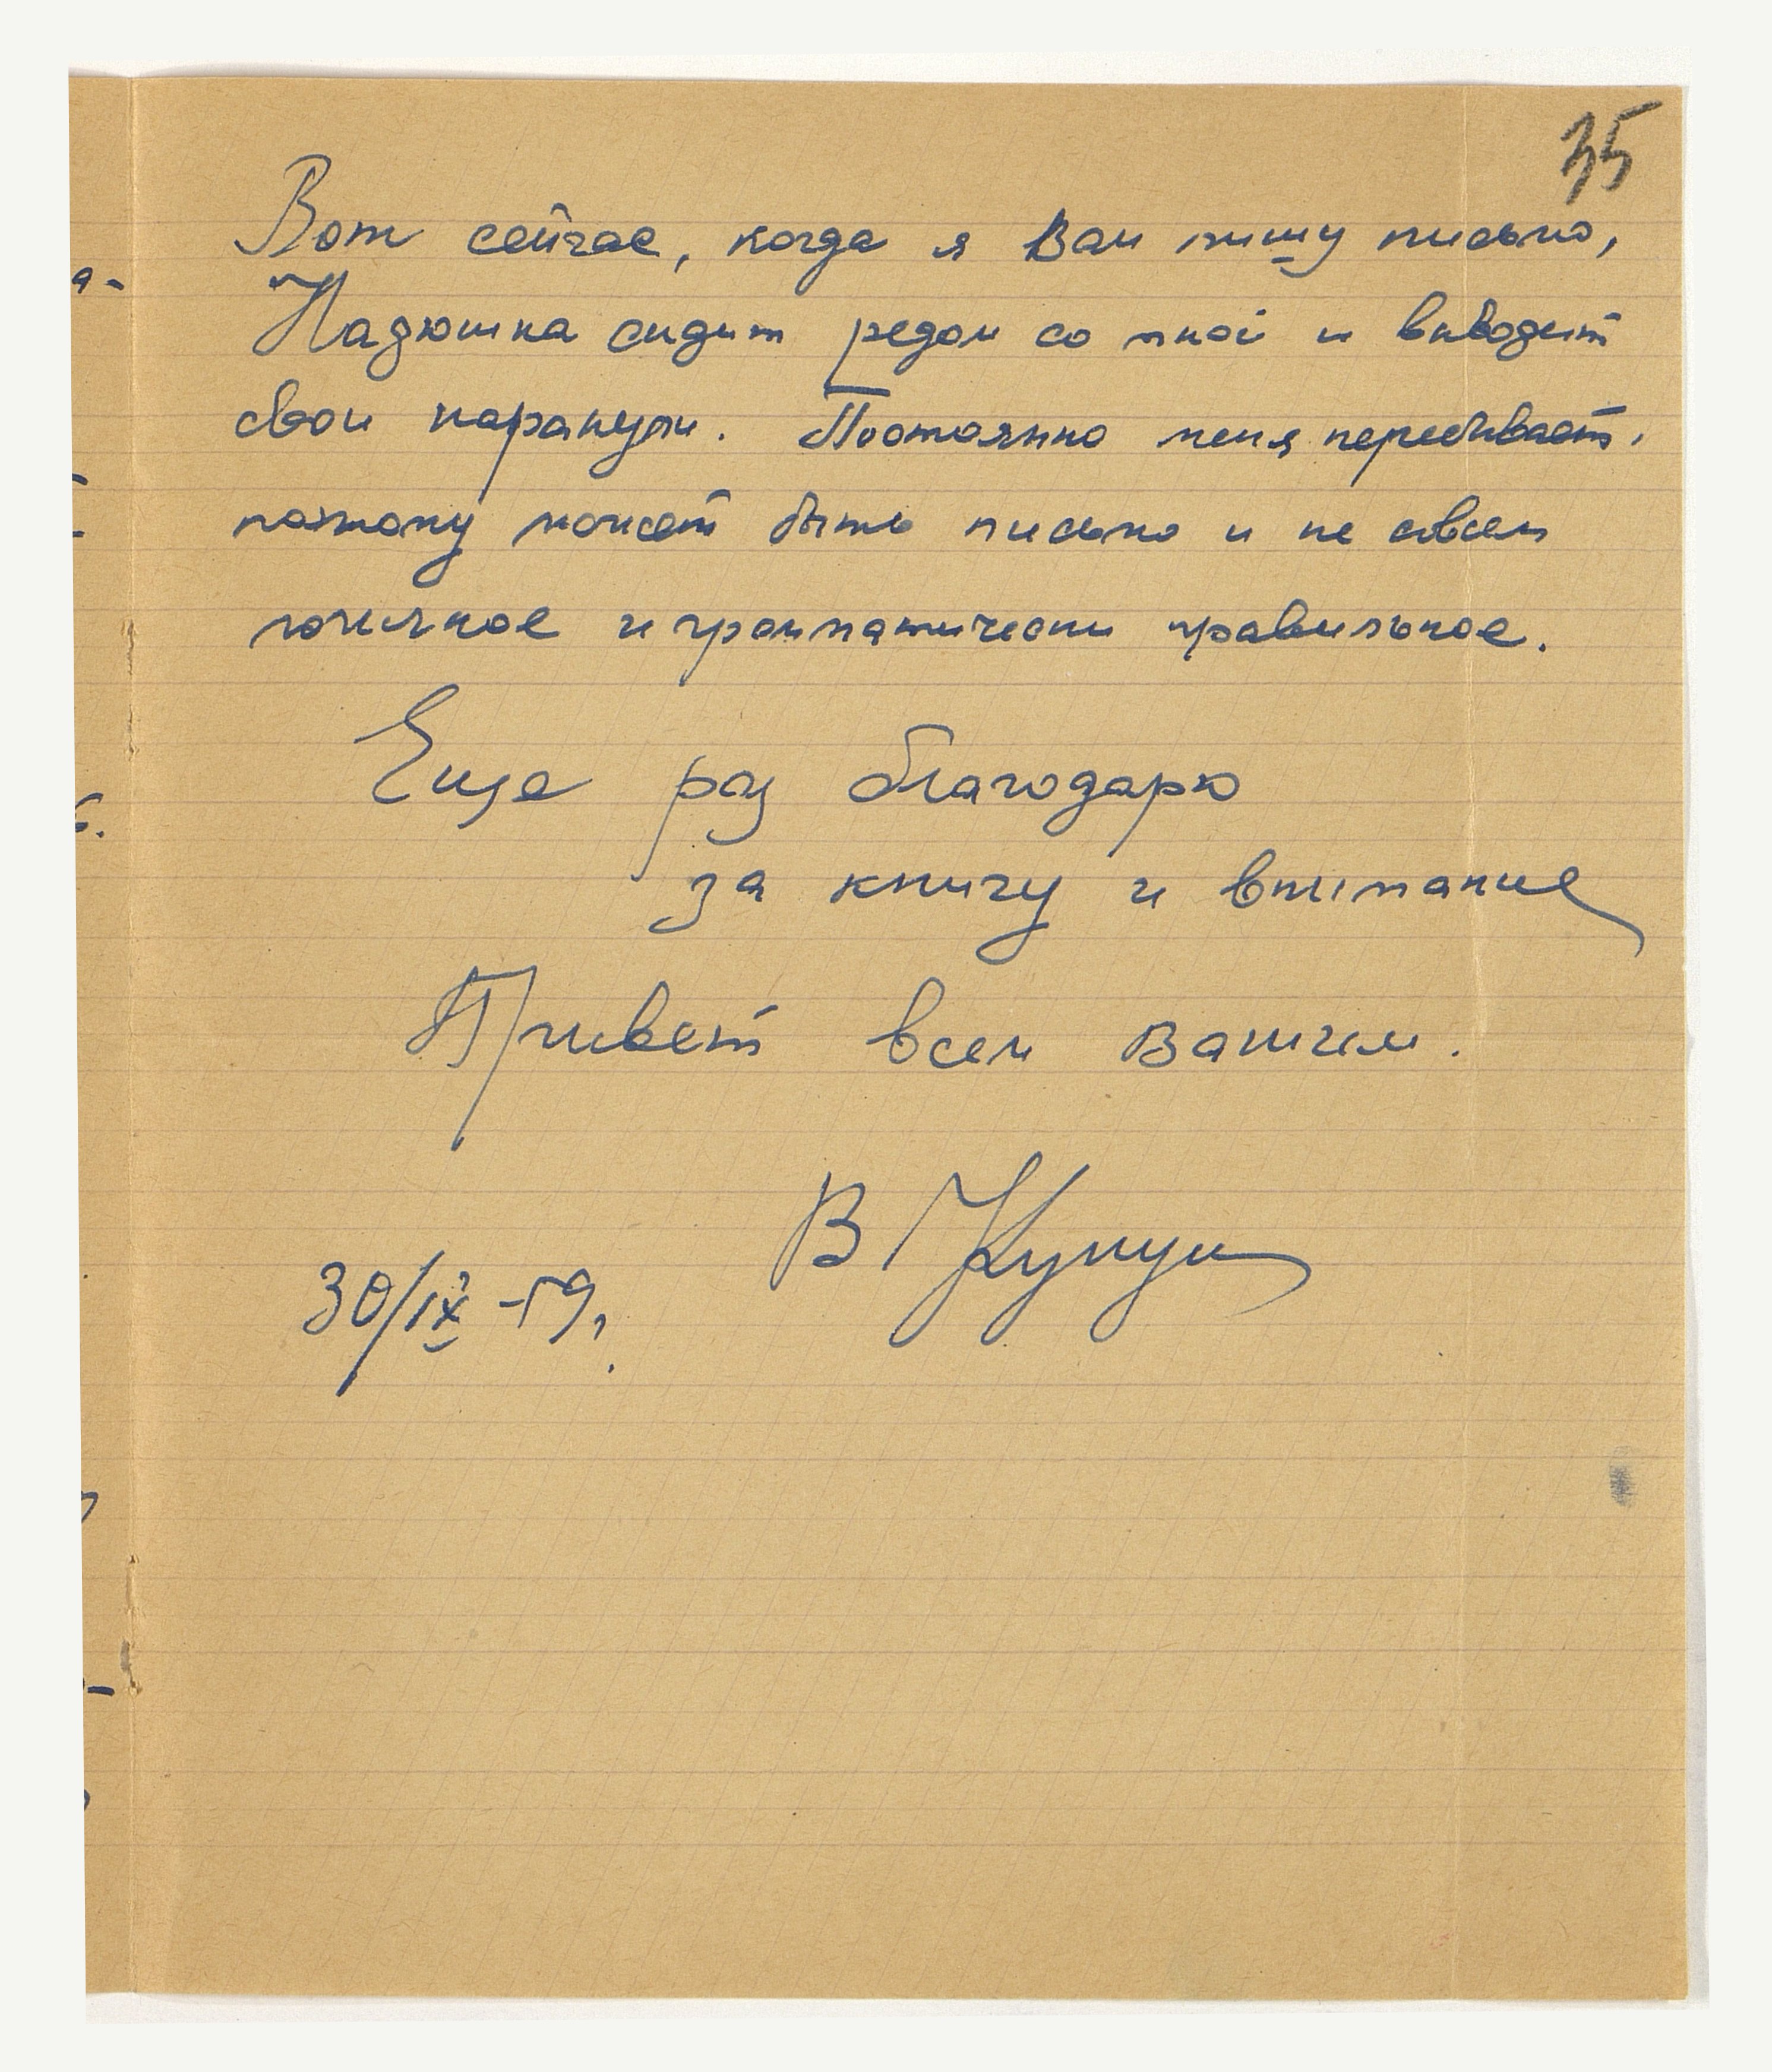 35
Вот сейчас, когда я Вам пишу письмо,
Надюшка сидит редом со мной и выводит
свои каракули. Постоянно меня перебивает,
поэтому может быть письмо и не совсем
логичное и грамматически правильное.
Еще раз благодарю
за книгу и внимание
Привет всем Вашим.
В
30/IX-59.